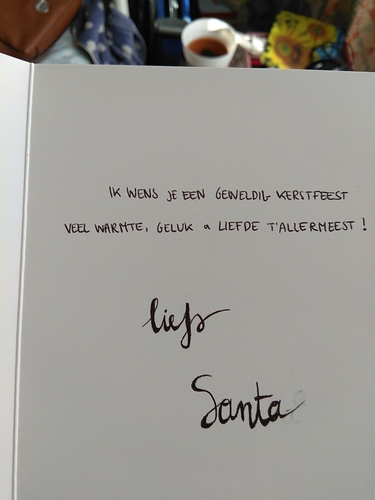 IK WENS JE EEN GEWELDIG KERSTFEEST
VEEL WARMTE, GELUK & LIEFDE T'ALLERMEEST!
liefs
Santa